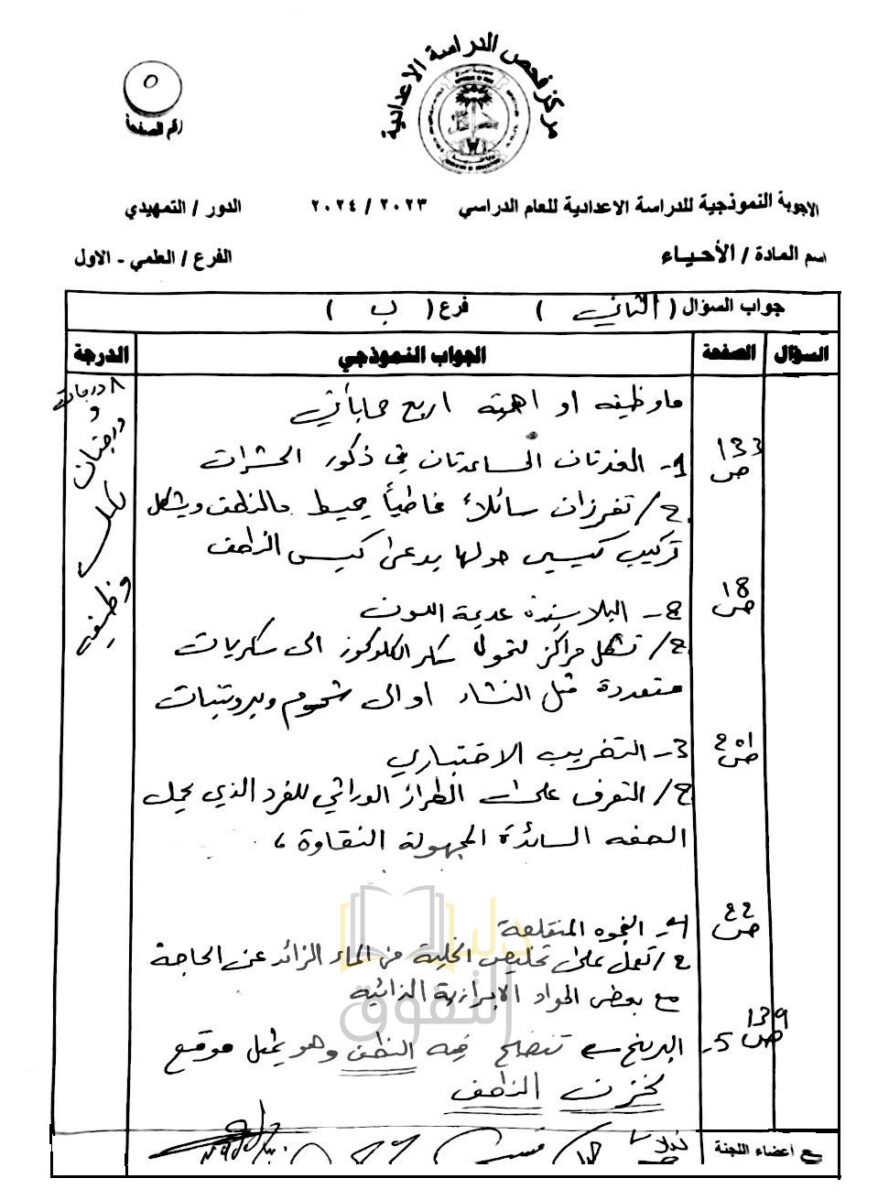 مركز فحص الدراسة الاعدادية
٥
رقم الصفحة
الاجوبة النموذجية للدراسة الاعدادية للعام الدراسي ٢٠٢٣ / ٢٠٢٤ الدور / التمهيدي
اسم المادة / الأحياء الفرع / العلمي - الاول
جواب السؤال ( الثاني ) فرع ( ب )
السؤال الصفحة الجواب النموذجي الدرجة
ما وظيفة او اهمية اربع مما يأتي ٨ درجات
ص 133 1- الغدتان المساعدتان في ذكور الحشرات
ج/ تفرزان سائلاً مخاطياً يحيط بالنطف ويشكل
تركيب كيسي حولها يدعى كيس النطف
درجتان لكل وظيفة
ص 18 2- البلاستيدة عديمة اللون
ج/ تشكل مراكز لتحول سكر الكلوكوز الى سكريات
متعددة مثل النشا او الى شحوم وبروتينات
ص 201 3- التضريب الاختباري
ج/ التعرف على الطراز الوراثي للفرد الذي يحمل
الصفة السائدة المجهولة النقاوة
ص 22 4- الفجوة المتقلصة
ج/ تعمل على تخليص الخلية من الماء الزائد عن الحاجة
مع بعض المواد الابرازية الذائبة
ص 139 5- البربخ تنضج فيه النطف وهو يمثل موقع
لخزن النطف
دليل التفوق
ع أعضاء اللجنة